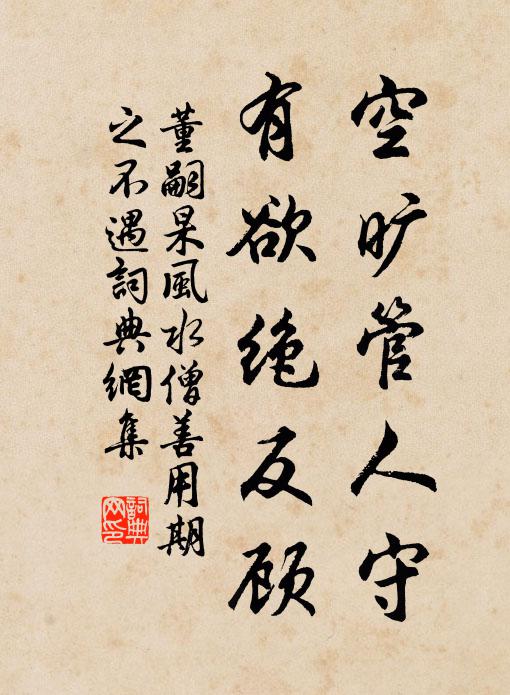 空旷管人守
有欲绝反顾
董嗣杲風水僧善用期
之不遇詞典網集
詞典網印